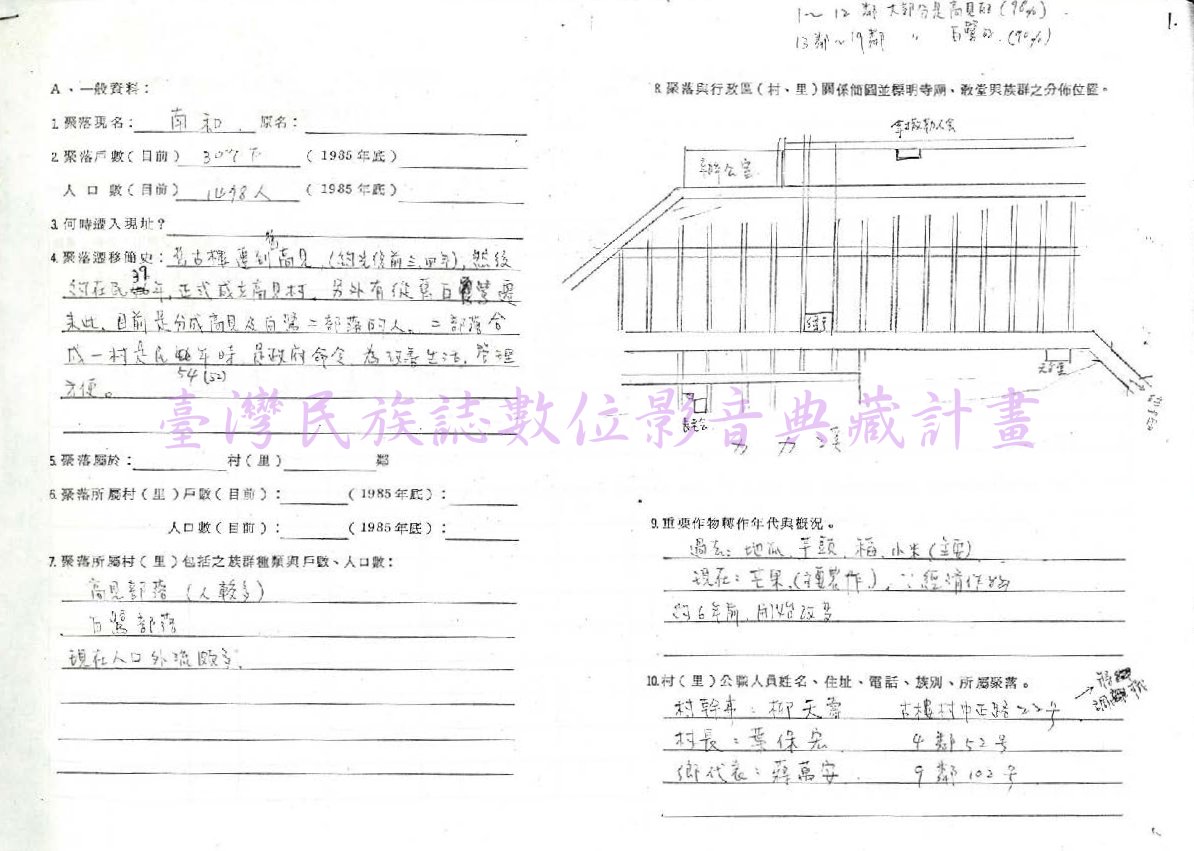 1～12鄰 大部分是高見的(90%).
13鄰～19鄰 〃 白鷺的.(90%)
1.
A、一般資料：
1.聚落現名： 南和 原名：
2.聚落戶數(目前) 307戶 (1985年底)
人口數(目前) 1498人 (1985年底)
3.何時遷入現址？
4.聚落遷移簡史：舊古樓遷到高見,(約光復前三、四年),然後
約在民39年,正式成立高見村.另外有從舊白鷺遷
來此.目前是分成高見及白鷺二部落的人。二部落合
成一村是民 年時.是政府命令,為改善生活,管理
54(52)
方便。
臺灣民族誌數位影音典藏計畫
5.聚落屬於： 村(里) 鄰
6.聚落所屬村(里)戶數(目前)： (1985年底)：
人口數(目前)： (1985年底)：
7.聚落所屬村(里)包括之族群種類與戶數、人口數：
高見部落(人較多)
白鷺部落
現在人口外流頗多.
8.聚落與行政區(村、里)關係簡圖並標明寺廟、教堂與族群之分佈位置。
拿撒勒人會
辦公室
天主堂
長老會
力力溪
9.重要作物轉作年代與概況。
過去：地瓜.芋頭.稻.小米(主要)
現在：芒果.(主要農作).∵經濟作物
約6年前,開始改多
10.村(里)公職人員姓名、住址、電話、族別、所屬聚落。
村幹事：柳天壽 古樓村中正路22号
村長：葉保宏 4鄰52号
鄉代表：蔣萬安 9鄰102号